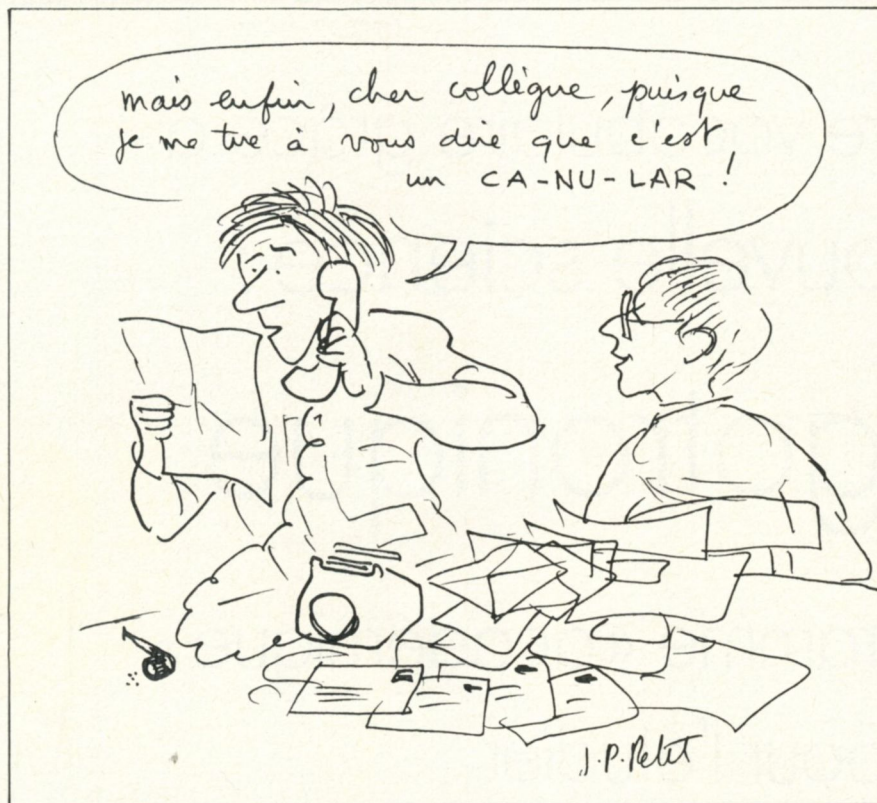 mais enfin, cher collègue, puisque
je me tue à vous dire que c'est
un CA-NU-LAR !
J.P. Petit